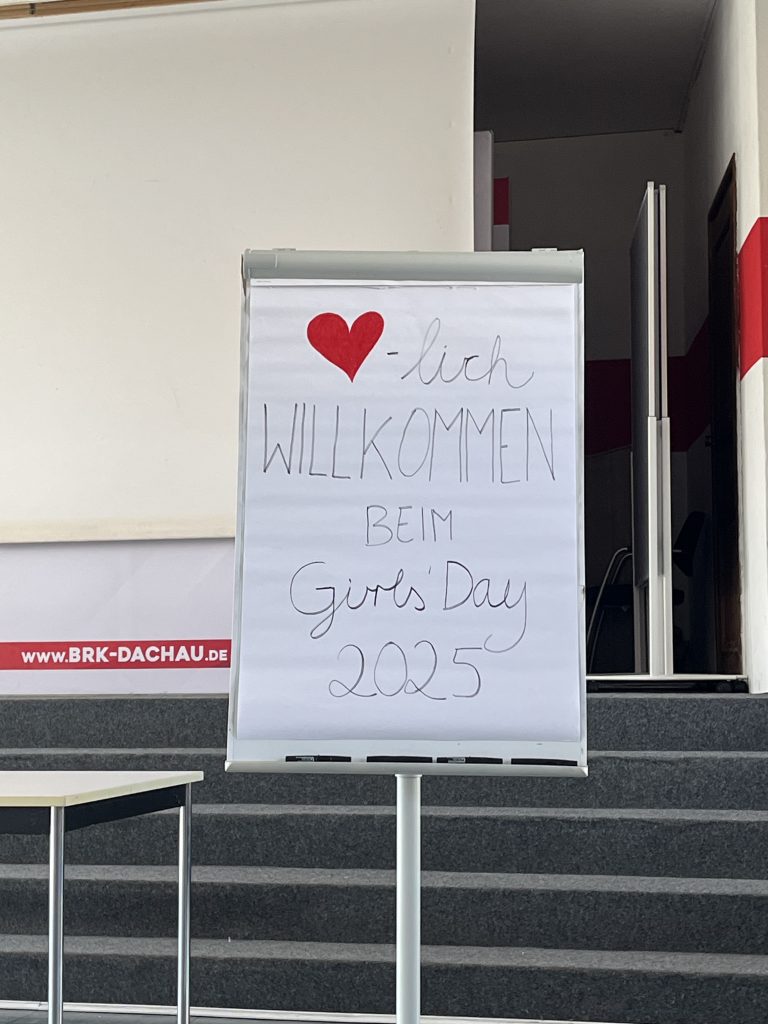 ❤-lich
WILLKOMMEN
BEIM
Girls' Day
2025
www.BRK-DACHAU.DE